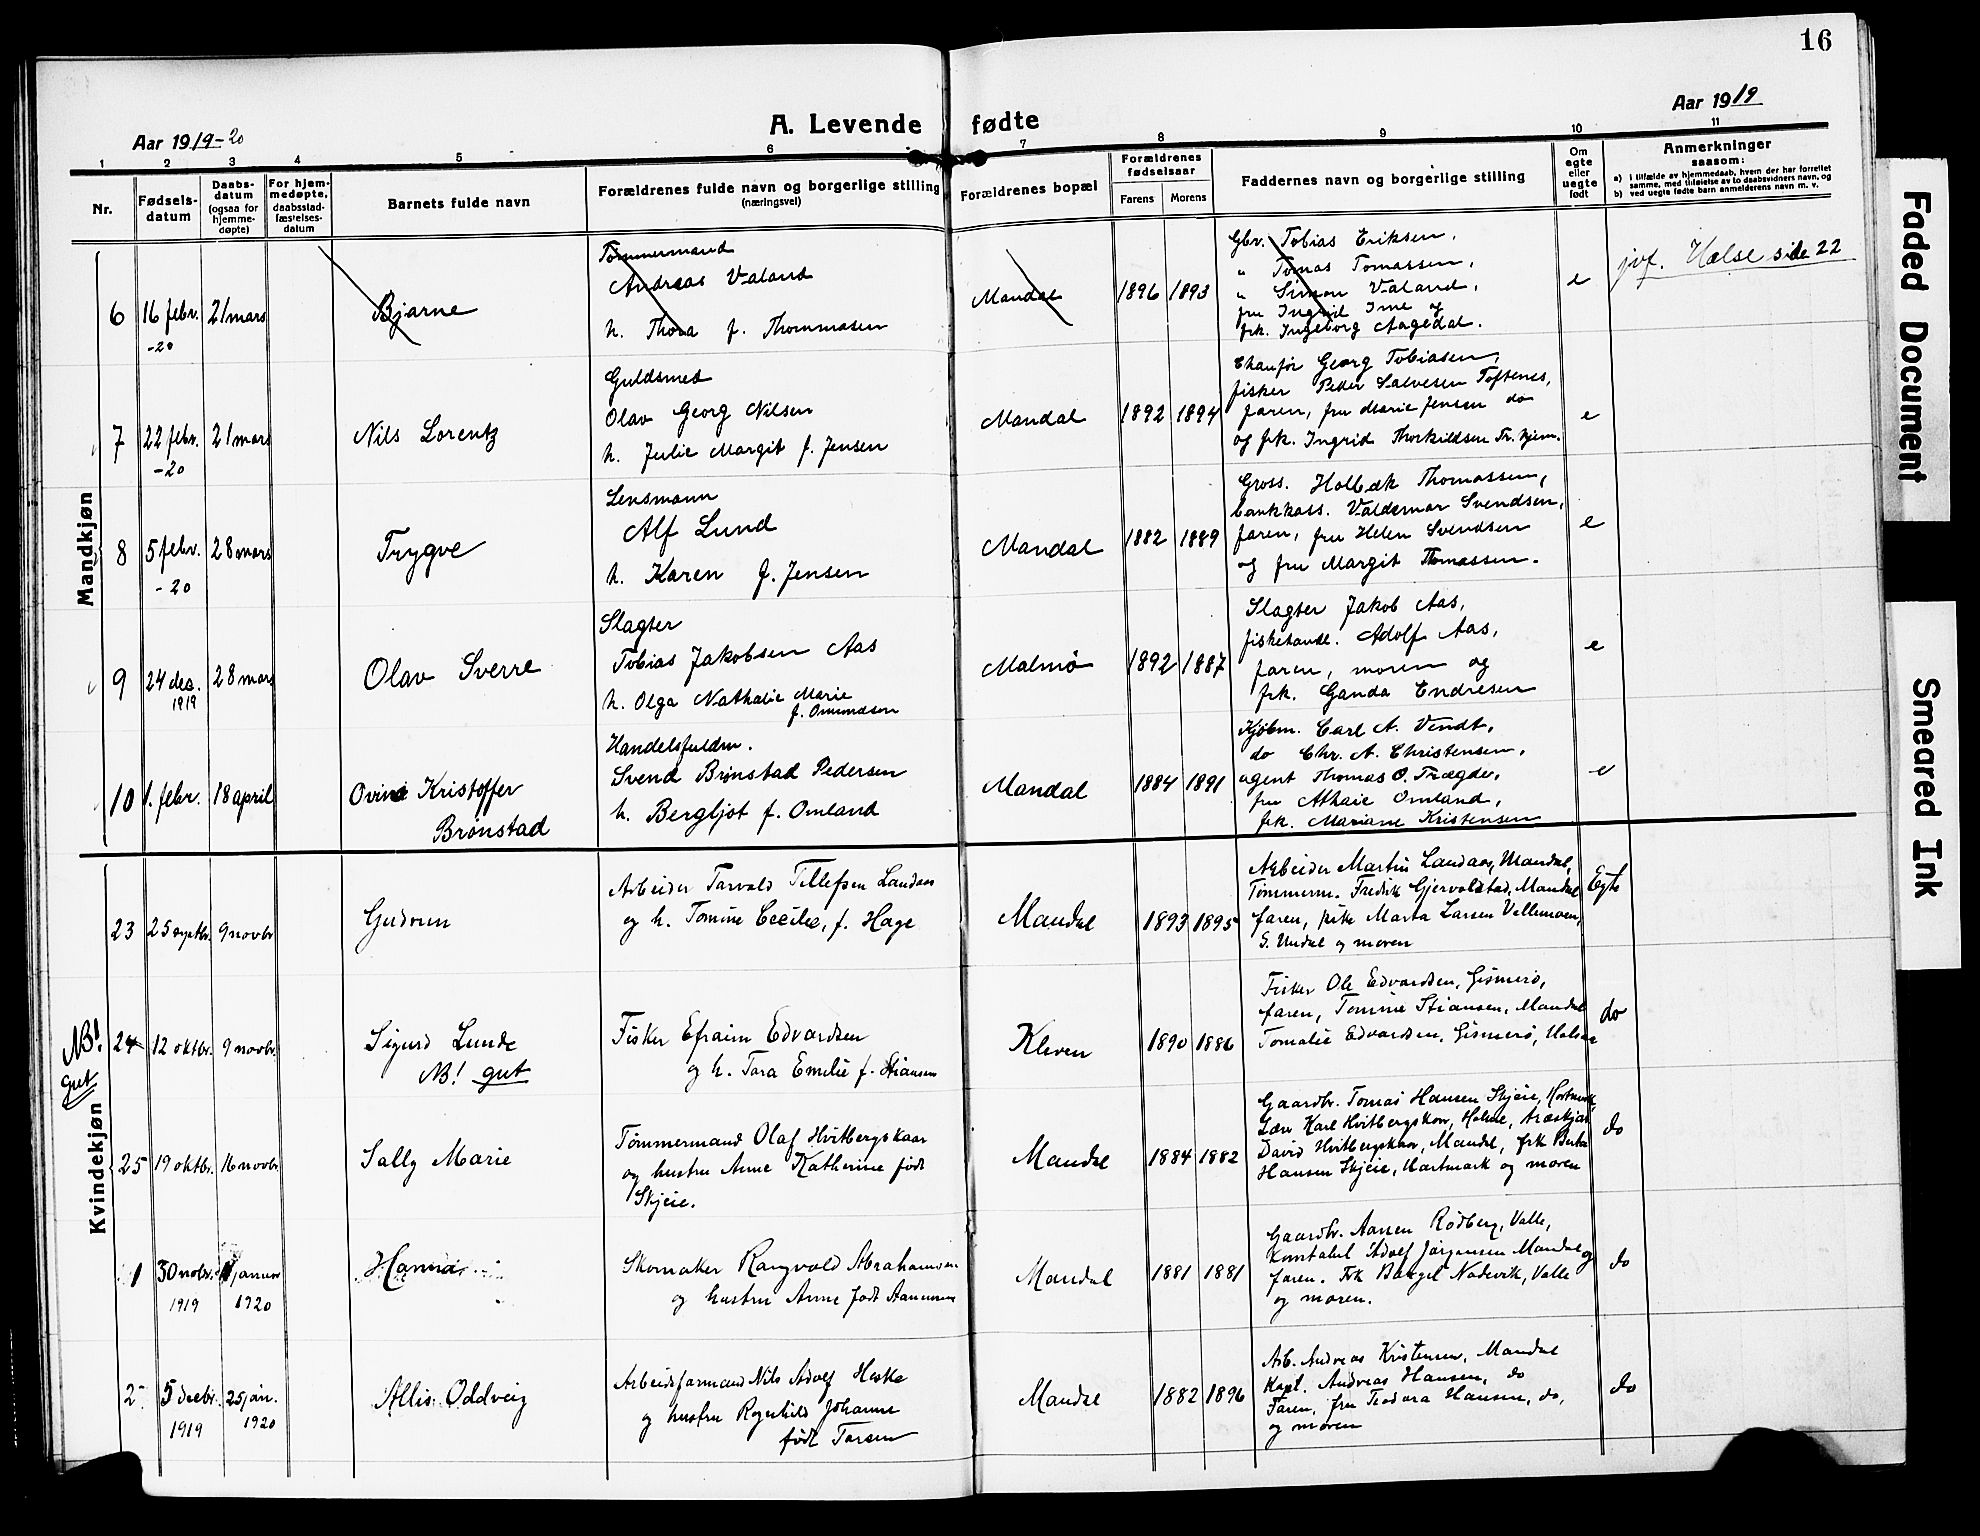 16
Aar 1919-20
A. Levende fødte
Aar 1919
1 2 3 4 5 6 7 8 9 10 11
Nr.
Fødsels-
datum
Daabs-
datum
(ogsaa for
hjemme-
døpte)
For hjem-
medøpte,
daabsstad-
fæstelses-
datum
Barnets fulde navn
Forældrenes fulde navn og borgerlige stilling
(næringsvei)
Forældrenes bopæl
Forældrenes
fødselsaar
Farens Morens
Faddernes navn og borgerlige stilling
Om
egte
eller
uegte
født
Anmerkninger
saasom:
a) i tilfælde av hjemmedaab, hvem der har forrettet
samme, med tilføielse av to daabsvidners navn, og
b) ved uegte fødte barn anmelderens navn m. v.
Mandkjøn
6 16 febr. -20 21 mars
Bjarne
Tømmermand
Andreas Valand
h. Thora f. Thommasen
Mandal 1896 1893
Gbr. Tobias Eriksen,
" Tomas Tomassen,
" Simon Valand,
fru Ingrid Ime og
frk. Ingeborg Aagedal.
e
jvf. Halse side 22
7 22 febr. -20 21 mars
Nils Lorentz
Guldsmed
Olav Georg Nilsen
h. Julie Margit f. Jensen
Mandal 1892 1894
Chauför Georg Tobiasen,
fisker Peder Salvesen Toftenes,
faren, fru Marie Jensen do
og frk. Ingrid Thorkildsen Tr. hjem.
e
8 5 febr. -20 28 mars
Trygve
Lensmann
Alf Lund
h. Karen f. Jensen
Mandal 1882 1889
Gross. Holbæk Thomassen,
bankkass. Valdemar Svendsen,
faren, fru Helen Svendsen
og fru Margit Thomassen.
e
9 24 des. 1919 28 mars
Olav Sverre
Slagter
Tobias Jakobsen Aas
h. Olga Nathalie Marie
f. Ommundsen
Malmø 1892 1887
Slagter Jakob Aas,
fiskehandl. Adolf Aas,
faren, moren og
frk. Ganda Endresen
e
10 1. febr. 18 april
Ovine Kristoffer
Brønstad
Handelsfuldm.
Svend Brønstad Pedersen
h. Bergljot f. Omland
Mandal 1884 1891
Kjøbm. Carl A. Vendt,
do Chr. A. Christensen,
agent Thomas O. Trægde,
fru Athaie Omland,
frk. Mariane Kristensen
e
Kvindekjøn
23 25 septbr. 9 novbr
Gudrun
Arbeider Tarvald Tellefsen Landaas
og h. Tomine Cecilie, f. Hage
Mandal 1893 1895
Arbeider Martin Landaas, Mandal,
Tømmerm. Fredrik Gjervoldstad, Mandal
faren, frk Marta Larsen Vallemoen,
S. Undal og moren
Egte
NB!
gut
24 12 oktbr. 9 novbr.
Sigurd Lunde
NB! gut
Fisker Efraim Edvardsen
og h. Tara Emilie f. Stiansen
Kleven 1890 1886
Fisker Ole Edvardsen, Gismerø,
faren, Tomine Stiansen, Mandal
Tomalie Edvardsen, Gismerø, Halsaa
do
25 19 oktbr. 16 novbr.
Sally Marie
Tømmermand Olaf Hvitbergskaar
og hustru Anne Katherine født
Skjeie.
Mandal 1884 1882
Gaardbr. Tomas Hansen Skjeie, Hartmark,
Lære Karl Hvitbergskor, Holme,
David Hvitbergskaar, Mandal, frk Berta
Hansen Skjeie, Hartmark og moren
do
1 30 novbr. 1919 1 januar 1920
Hanna
Skomaker Rangvald Abrahamsen
og hustru Anne født Aanensen
Mandal 1881 1881
Gaardbr. Aanen Rødberg, Valle,
Konstabel Adolf Jørgensen Mandal og
faren. Frk Bergel Nødevik, Valle
og moren.
do
2 5 decbr. 1919 25 jan. 1920
Allis Oddveig
Arbeidsformand Nils Adolf Heske
og hustru Ragnhild Johanne
født Tarsen
Mandal 1882 1896
Arb. Andreas Kristensen, Mandal
Kapt. Andreas Hansen, do
Faren, fru Teodora Hansen, do,
og moren
do
Faded Document
Smeared Ink